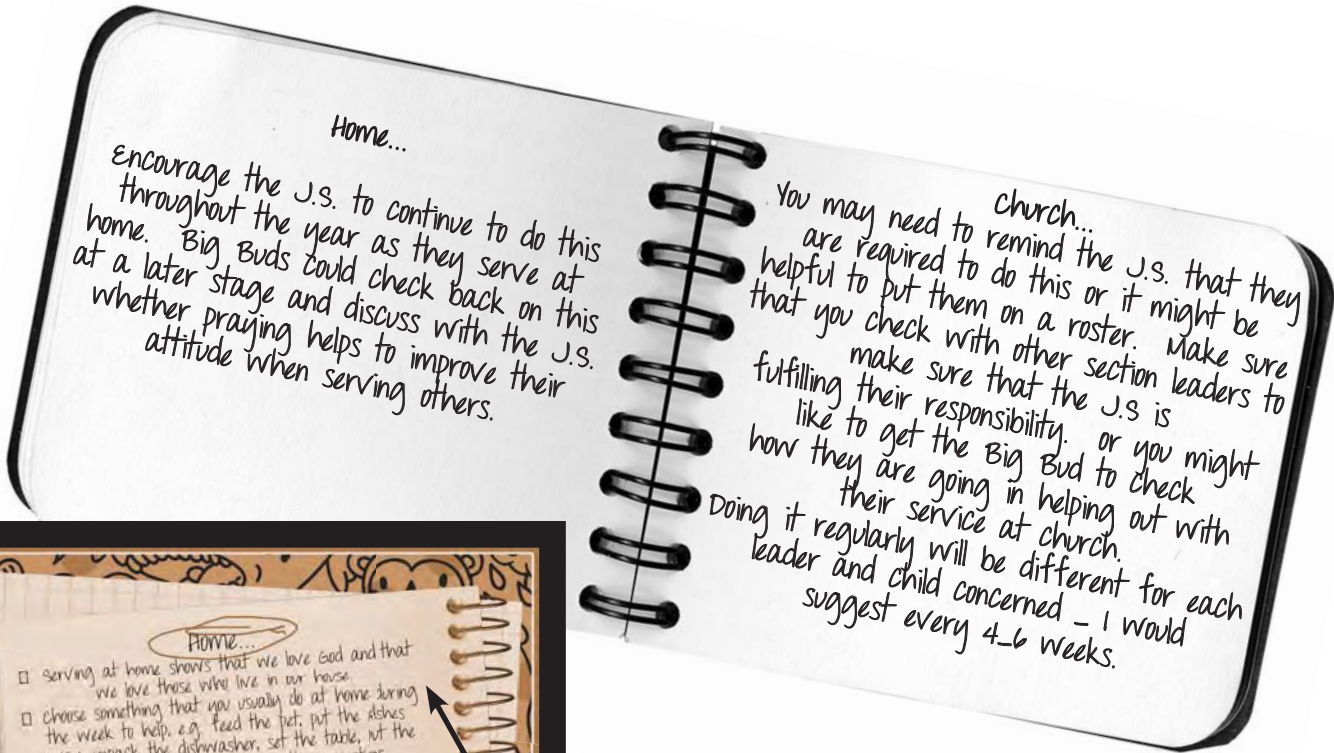 Home...
Encourage the J.S. to continue to do this
throughout the year as they serve at
home. Big Buds could check back on this
at a later stage and discuss with the J.S.
whether praying helps to improve their
attitude when serving others.
Church...
You may need to remind the J.S. that they
are required to do this or it might be
helpful to put them on a roster. Make sure
that you check with other section leaders to
make sure that the J.S is
fulfilling their responsibility. or you might
like to get the Big Bud to check
how they are going in helping out with
their service at church.
Doing it regularly will be different for each
leader and child concerned _ I would
suggest every 4_6 weeks.
Home...
serving at home shows that we love God and that
we love those who live in our house.
choose something that you usually do at home during
the week to help. e.g. feed the pet, put the dishes
the dishwasher, set the table, put the